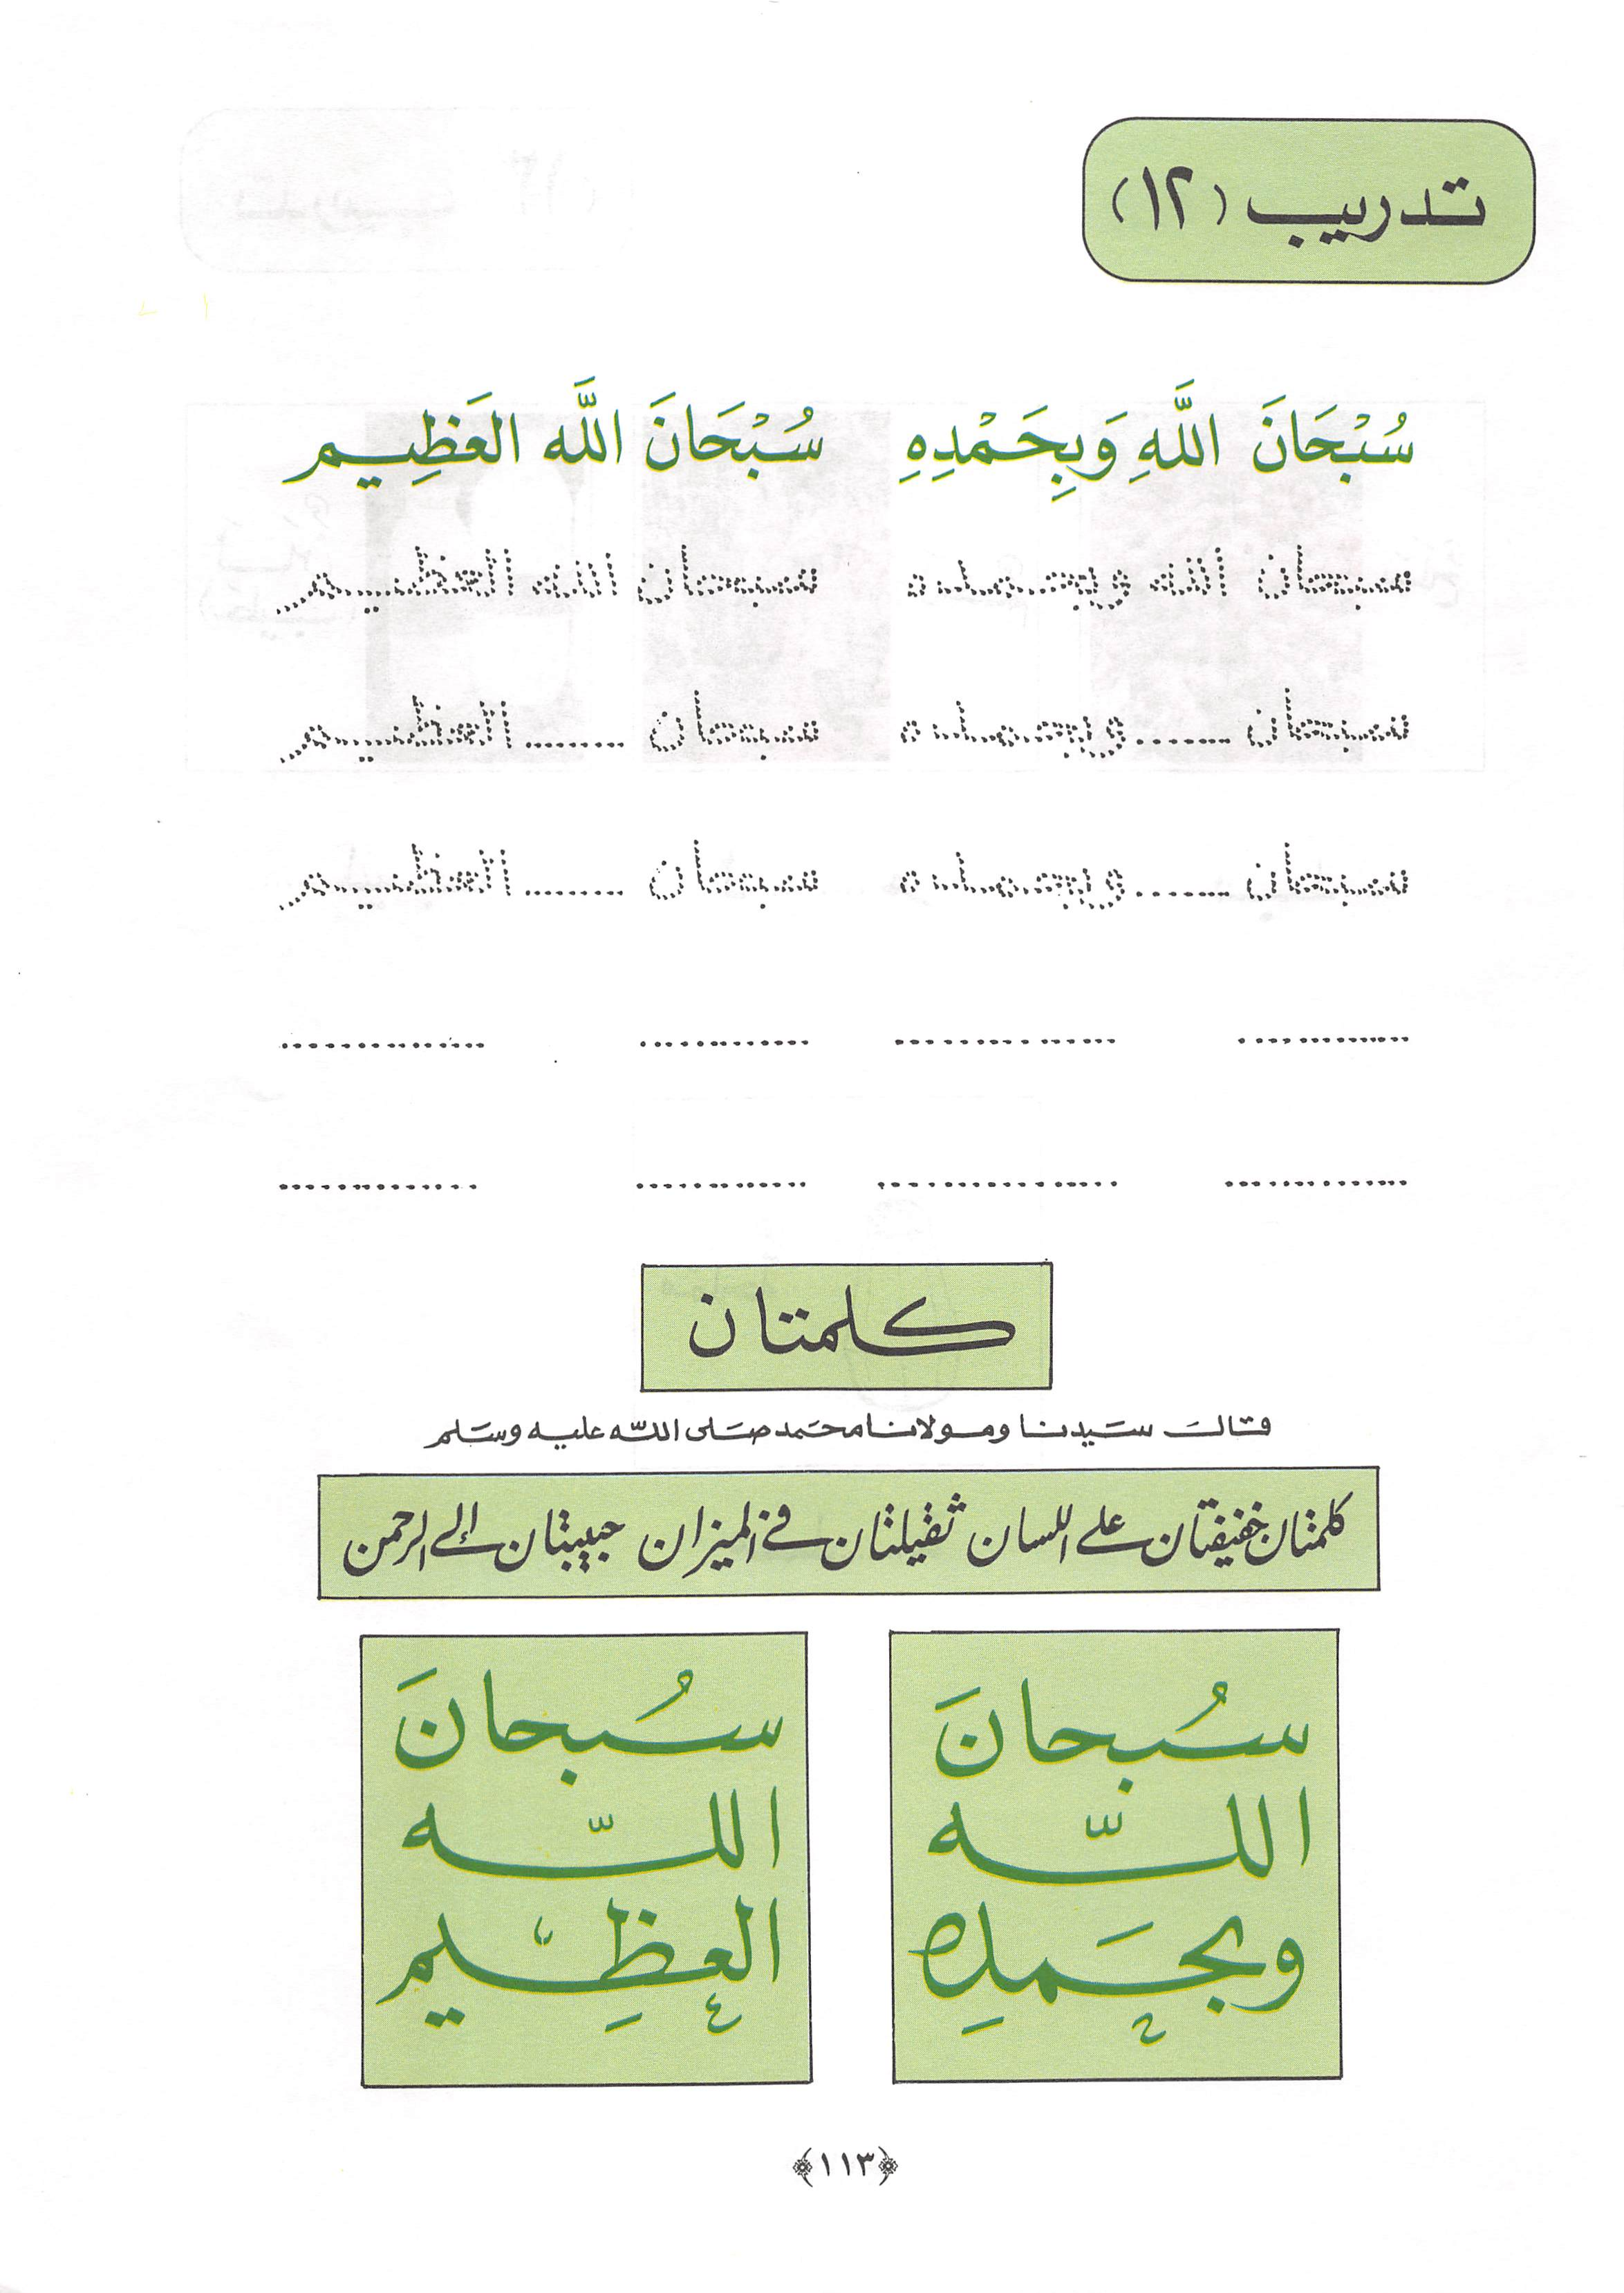 تدريب (١٢)
سُبْحَانَ اللَّهِ وَبِحَمْدِهِ سُبْحَانَ اللَّه العَظِيم
سبحان الله وبحمده سبحان الله العظيم
سبحان ........ وبحمده سبحان ......... العظيم
سبحان ........ وبحمده سبحان ......... العظيم
............... .................. ............... .................
............... .................. ............... .................
كلمتان
قال سيدنا ومولانا محمد صلى الله عليه وسلم
كلمتان خفيفتان على اللسان ثقيلتان في الميزان حبيبتان إلى الرحمن
سُبحانَ
اللّه
وبحَمدِه
سُبحانَ
اللّه
العظِيم
﴿١١٣﴾